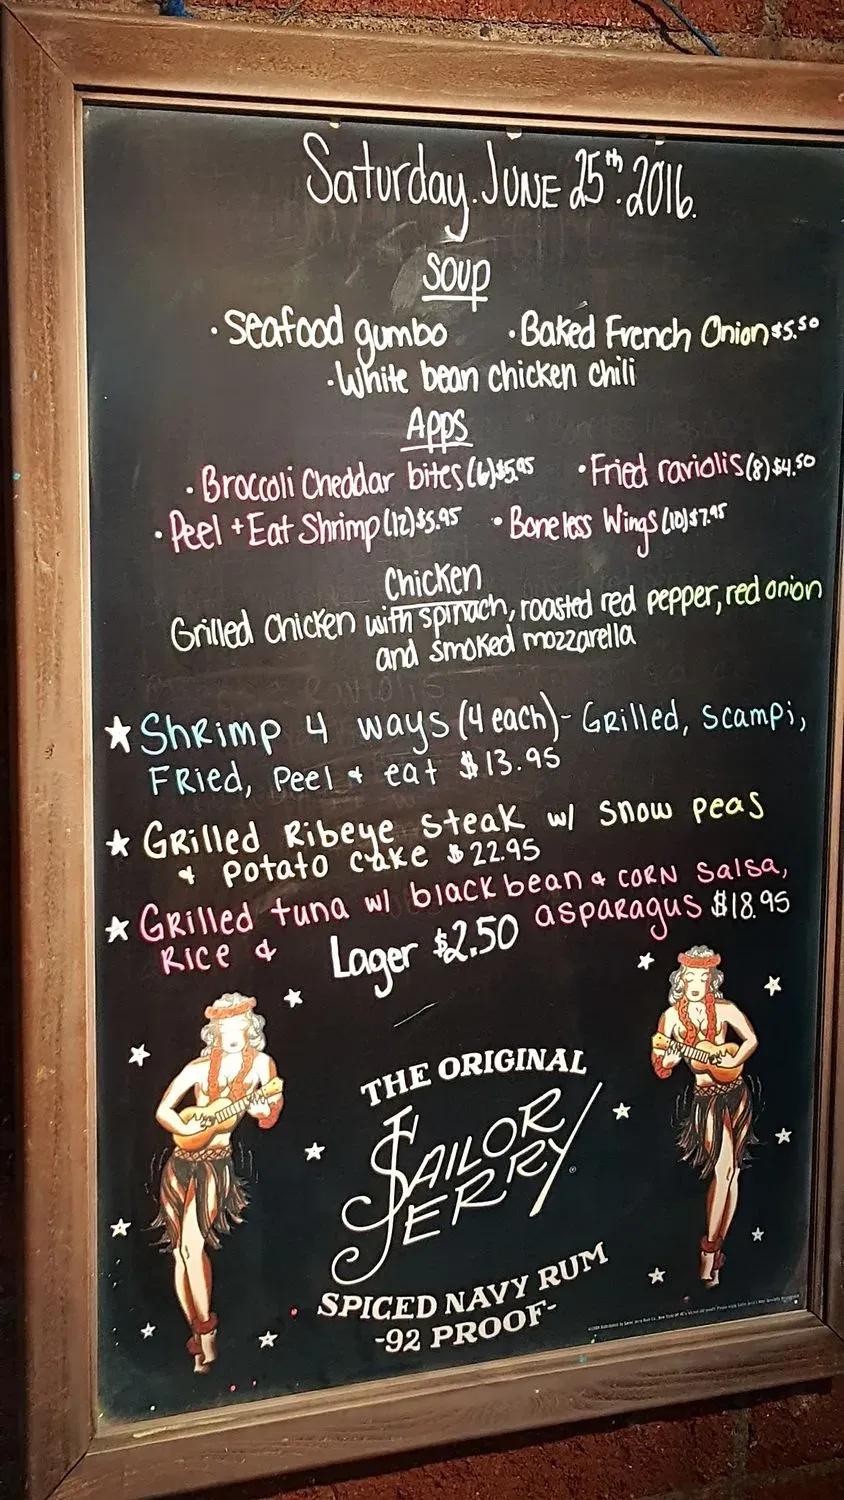 Saturday. JUNE 25th. 2016.
Soup
· Seafood gumbo · Baked French Onion $5.50
· White bean chicken chili
Apps
· Broccoli Cheddar bites (6) $5.95 · Fried raviolis (8) $4.50
· Peel + Eat Shrimp (12) $5.95 · Boneless Wings (10) $7.95
Chicken
Grilled Chicken with spinach, roasted red pepper, red onion
and smoked mozzarella
★ Shrimp 4 ways (4 each) - Grilled, Scampi,
Fried, Peel + eat $13.95
★ Grilled Ribeye Steak w/ Snow peas
+ potato cake $22.95
★ Grilled tuna w/ black bean + corn Salsa,
Rice + asparagus $18.95
Lager $2.50
THE ORIGINAL
SAILOR
JERRY®
SPICED NAVY RUM
-92 PROOF-